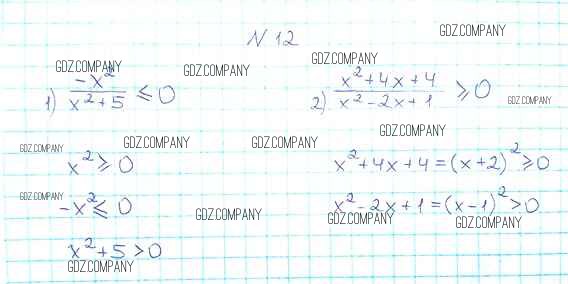 N 12
GDZ.COMPANY
GDZ.COMPANY
GDZ.COMPANY
GDZ.COMPANY
1) -x² / x²+5 ≤ 0
2) x²+4x+4 / x²-2x+1 ≥ 0
GDZ.COMPANY
GDZ.COMPANY
GDZ.COMPANY
GDZ.COMPANY
GDZ.COMPANY
x² ≥ 0
x²+4x+4=(x+2)² ≥ 0
GDZ.COMPANY
-x² ≤ 0
x²-2x+1=(x-1)² > 0
GDZ.COMPANY
GDZ.COMPANY
GDZ.COMPANY
x²+5 > 0
GDZ.COMPANY